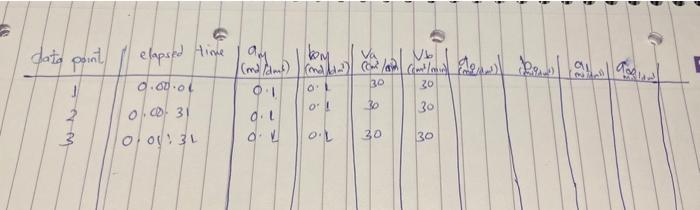 data point elapsed time aμ (mol/dm³) bμ (mol/dm³) Va (cm³/min) Vb (cm³/min) a₀ (mol/dm³) b₀ (mol/dm³) a₁ (mol/dm³) a∞ (mol/dm³)
1 0.00.01 0.1 0.1 30 30
2 0.00.31 0.1 0.1 30 30
3 0.01:31 0.1 0.1 30 30